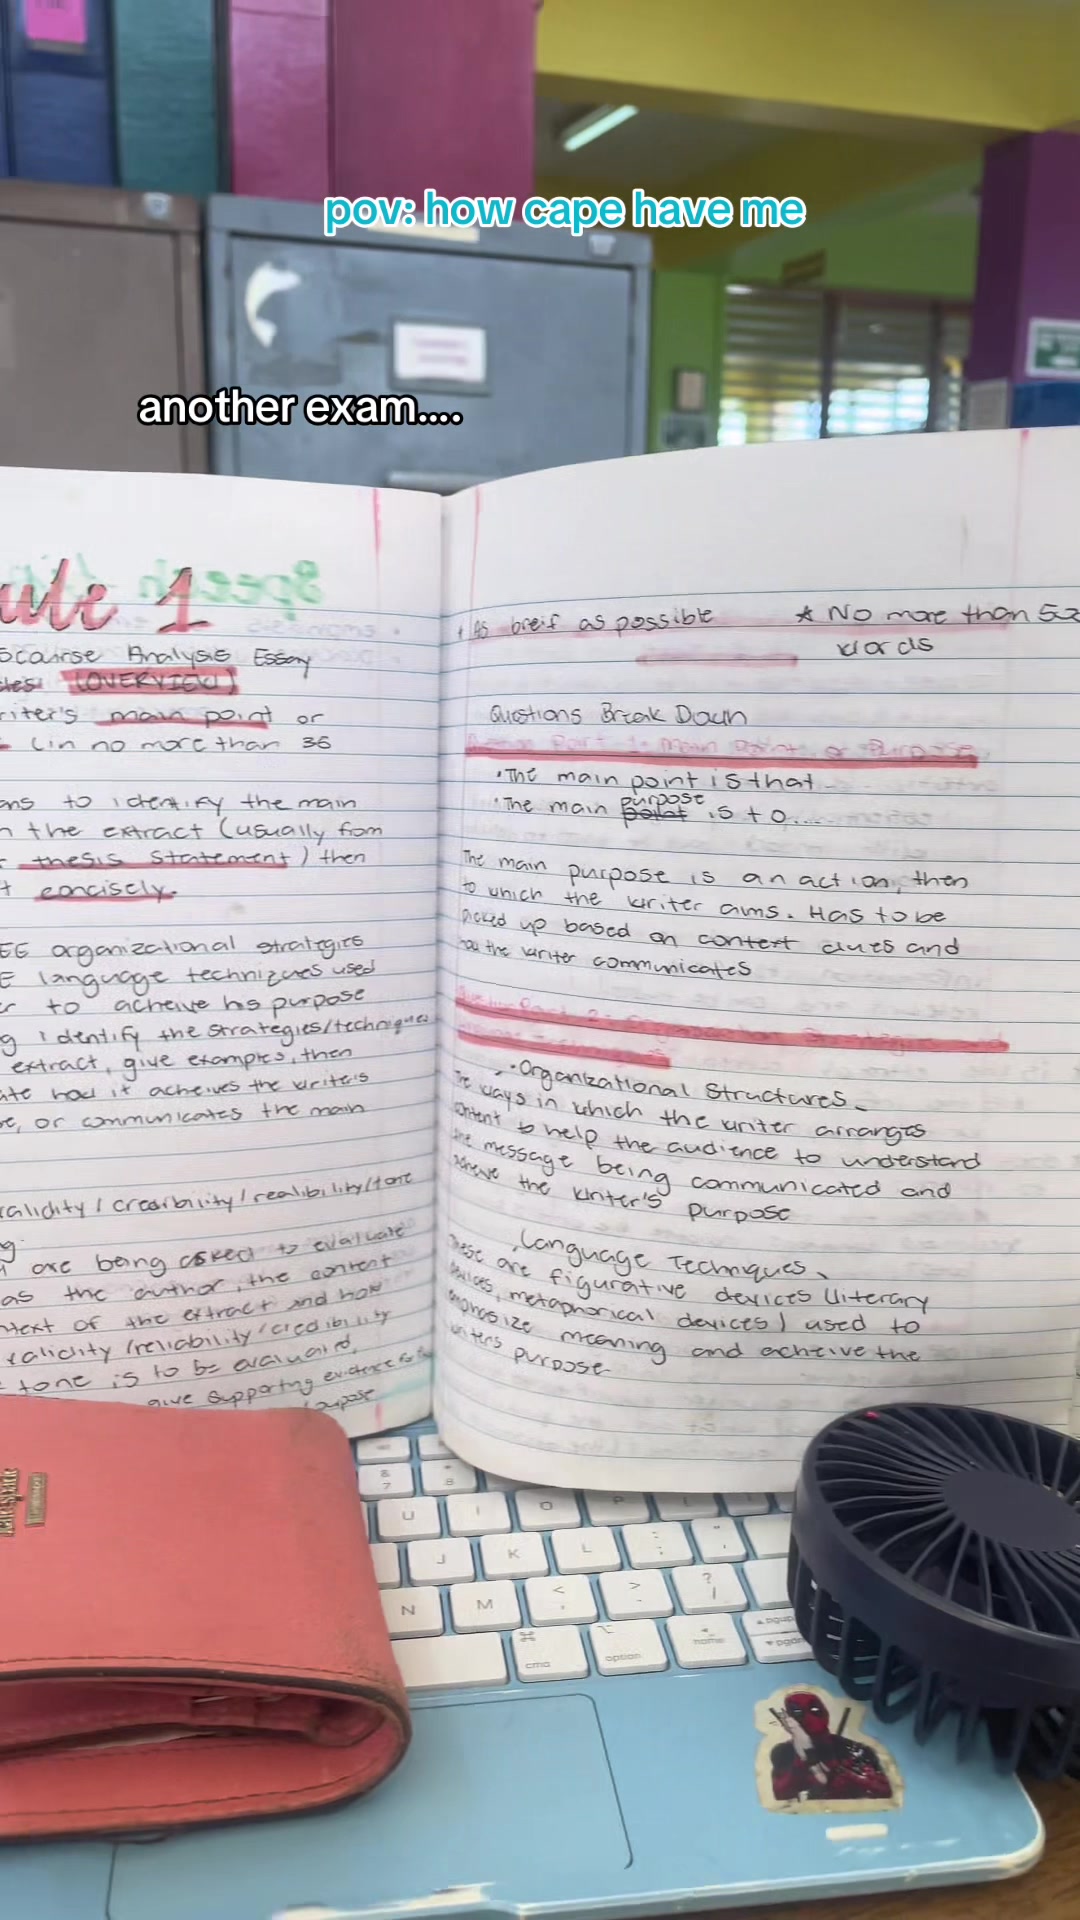 pov: how cape have me
another exam....
ule 1
Analysis Essay
(OVERVIEW)
riter's main point or
(in no more than 36
ons to identify the main
n the extract (usually from
thesis statement) then
t concisely.
EE organizational strategies
E language techniques used
r to acheive his purpose
g identify the strategies/techniques
extract, give examples, then
ate how it acheives the writer's
se, or communicates the main
validity / / /tone
g
u are being asked to evaluate
as the author, the content
ntext of the extract and how
validity /reliability/credibility
tone is to be evaluated.
give supporting evidence for
purpose
As breif as possible
★ No more than 52
words
Questions Break Down
Question Part 1: Main Point or Purpose
• The main point is that
• The main purpose point is to....
The main purpose is an action, then
to which the writer aims. Has to be
picked up based on context clues and
how the writer communicates
Part 2:
• Organizational Structures.
The ways in which the writer arranges
content to help the audience to understand
the message being communicated and
acheive the writer's purpose
Language Techniques
These are figurative devices (literary
devices, metaphorical devices) used to
emphasize meaning and acheive the
writers purpose
kate spade
&
7
*
8
U
I
O
P
J
K
L
:
;
"
'
N
M
<
,
>
.
?
/
⌘
cmd
⌥
option
home
pgup
pgdn